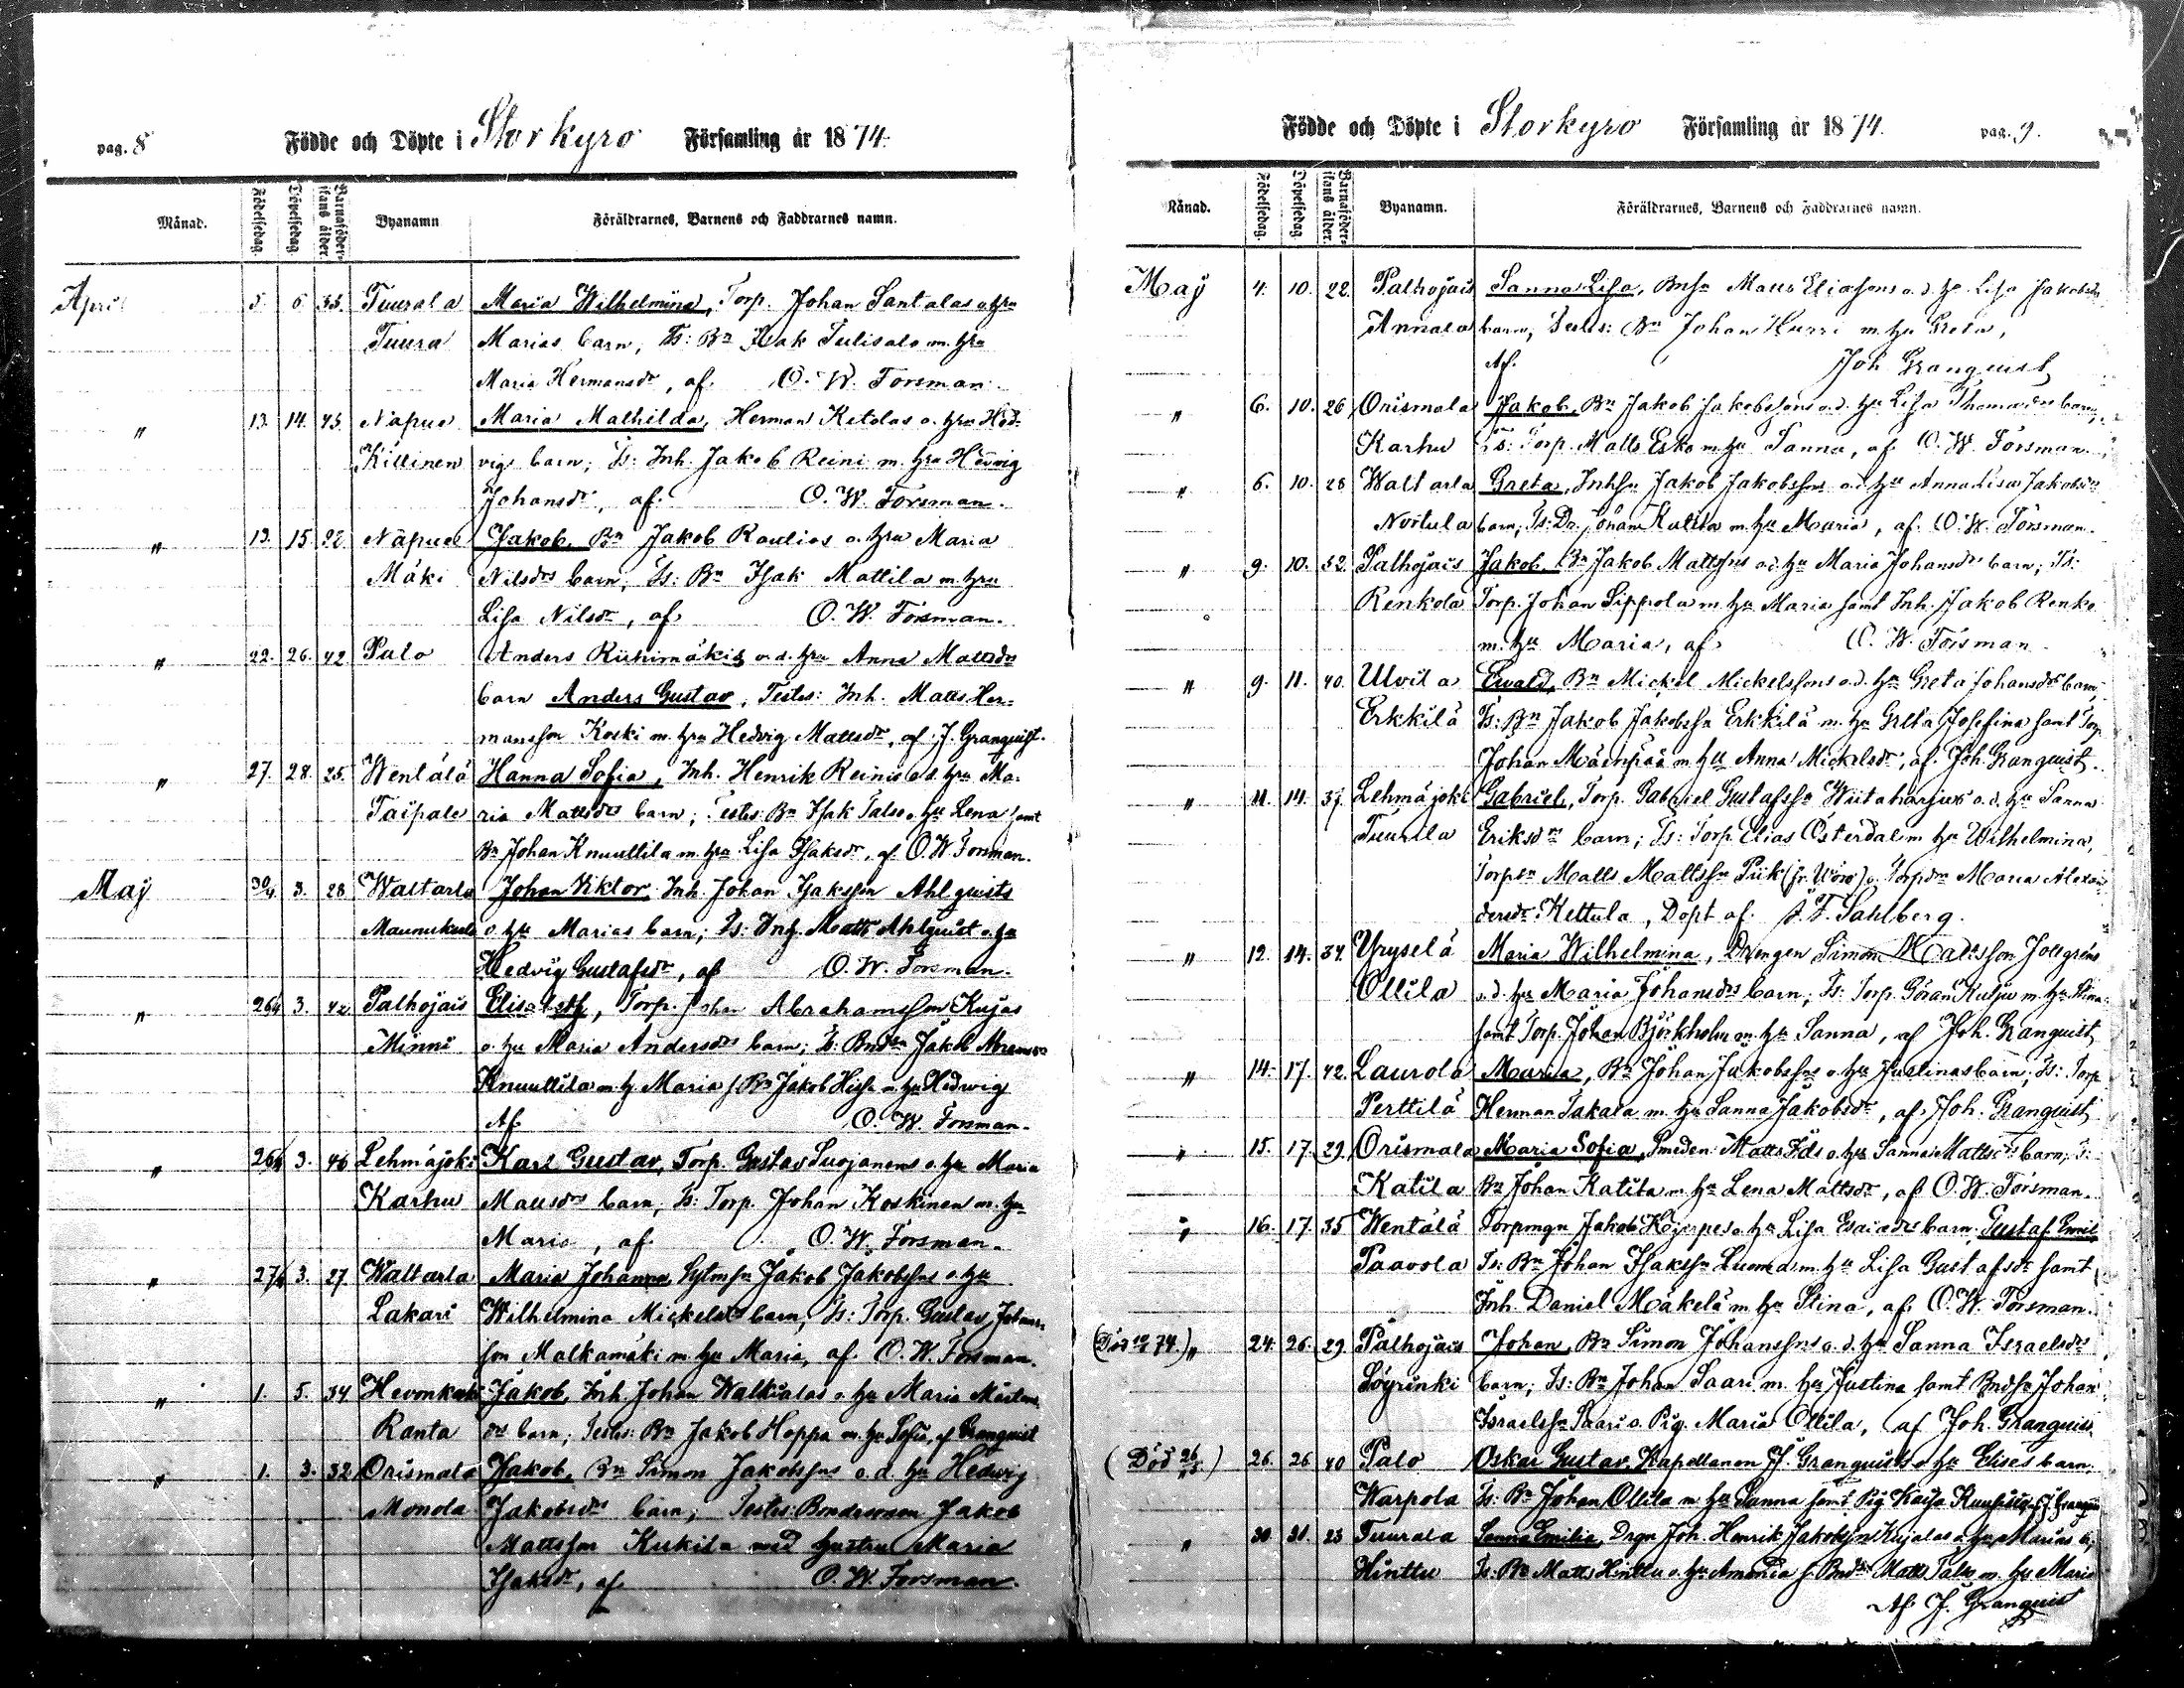 pag. 8 Födde och Döpte i Storkyro Församling år 1874.
Månad. Födelsedag. Döpelsedag Barnaföderskans ålder Byanamn Föräldrarnes, Barnens och Faddrarnes namn.
April 5. 6 35. Tuurala Maria Wilhelmina, Torp. Johan Santalas o. hru
Tuura Marias barn; Ts: Bn Isak Tulisalo m. hru
Maria Hermansdr, af O. W. Forsman.
" 13. 14. 43. Napue Maria Mathilda, Herman Ketolas o. hru Hed-
Killinen vigs barn; Ts: Inh. Jakob Reini m. hru Hedvig
Johansdr, af O. W. Forsman.
" 13. 15. 32. Näpue Jakob, Bn Jakob Raulios o. hru Maria
Mäki Nilsdrs barn; Ts: Bn Isak Mattila m. hru
Lisa Nilsdr, af O. W. Forsman.
" 22. 26. 42 Palo Anders Riihimäkis o. d. hru Anna Mattsdrs
barn Anders Gustav, Testes: Inh. Matts Her-
mansson Koski m. hru Hedvig Mattsdr, af J. Granquist.
" 27. 28. 25. Wentälä Hanna Sofia, Inh. Henrik Reinis o. d. hru Ma-
Taipale ria Mattsdrs barn; Testes: Bn Isak Talso o. hu Lena samt
Bn Johan Knuuttila m. hru Lisa Isaksdr, af O. W. Forsman.
May 30/4 3. 28 Waltarla Johan Viktor, Inh. Johan Isaksson Ahlquists
o. hu Marias barn; Ts: Inh. Matts Ahlquist o. hu
Hedvig Gustafsdr, af O. W. Forsman.
" 26/4 3. 42 Palhojais Elisabeth, Torp. Johan Abrahamsson Kujas
Minni o. hu Maria Andersdrs barn; Ts: Jakob
Knuuttila m. h. Maria s. Bn Jakob Hissa m. hu Hedwig
Af O. W. Forsman.
" 26/4 3. 46 Lehmäjoki Karl Gustav, Torp. Gustav Luojanens o. hu Maria
Karhu Mattsdrs barn; Ts: Torp. Johan Koskinen m. hu
Maria, af O. W. Forsman.
" 27/4 3. 27 Waltarla Maria Johanna, Jakob Jakobssons o. hu
Lakari Wilhelmina Mickelsdrs barn, Ts: Torp. Gustav Johans-
son Malkamäki m. hu Maria, af O. W. Forsman.
" 1. 5. 34 Jakob, Inh. Johan Walkialas o. hu Maria
Ranta drs barn; Testes: Bn Jakob Hoppa m. hu Sofia, af Granquist
" 1. 3. 32 Orismala Jakob, Bn Simon Jakobssons o. d. hu Hedvig
Monola Jakobsdrs barn; Testes: Bondesonen Jakob
Mattsson Kukila med hustru Maria
Isaksdr, af O. W. Forsman.
Födde och Döpte i Storkyro Församling år 1874. pag. 9.
Månad. Födelsedag. Döpelsedag. Barnaföderskans ålder. Byanamn. Föräldrarnes, Barnens och Faddrarnes namn.
May 4. 10. 22. Palhojais Sanna Lisa, Matts Eliassons o. d. hu Lisa Jakobsdrs
Annala barn, Testes: Bn Johan Hurri m. hu Greta,
Af. Joh Granquist
" 6. 10. 26 Orismala Jakob, Bn Jakob Jakobssons o. d. hu Lisa Thomasdrs barn;
Karhu Ts: Torp. Matts Esko m hu Sanna, af O. W. Forsman.
" 6. 10. 28 Waltarla Greta, Jakob Jakobssons o. d. hu Anna Lisa Jakobsdrs
barn; Ts: Dr. Johan m. hu Maria, af O. W. Forsman.
" 9. 10. 32. Palhojais Jakob, Bn Jakob Mattssons o. d. hu Maria Johansdrs barn; Ts:
Renkola Torp. Johan Sippola m. hu Maria samt Inh. Jakob Renko
m. hu Maria, af O. W. Forsman
" 9. 11. 40. Ulvila Ewald, Bn Mickel Mickelssons o. d. hu Greta Johansdrs barn;
Erkkilä Ts: Bn Jakob Jakobsson Erkkilä m. hu Greta Josefina samt Torp
Johan Mäenpää m hu Anna Mickelsdr, af Joh. Granquist.
" 11. 14. 37. Lehmäjoki Gabriel, Torp. Gabriel Gustafsson Wiitaharjus o. d. hu Sanna
Tuurila Eriksdrs barn; Ts: Torp. Elias Österdal m hu Wilhelmina,
Matts Mattsson Piik (fr. Wörå) o. Maria Alexan-
dersdr Kettula, Döpt af Sahlberg.
" 12. 14. 34. Yryselä Maria Wilhelmina, Drengen Simon Mattsson Jollgréns
Ollila o. d. hu Maria Johansdrs barn; Ts: Torp. Göran Kulju m. hu Stina
samt Torp. Johan Björkholm m. hu Sanna, af Joh. Granquist
" 14. 17. 42. Laurola Maria, Bn Johan Jakobssons o. hu Justinas barn; Ts: Torp
Perttilä Herman Takala m. hu Sanna Jakobsdr, af Joh. Granquist
" 15. 17. 29. Orismala Maria Sofia, Smeden Matts o. hu Sanna Mattsdrs barn; T:
Katila Bn Johan Katila m hu Lena Mattsdr, af O. W. Forsman.
" 16. 17. 35 Wentälä Jakob o. hu Lisa Esaiadrs barn. Gustaf Emil,
Paavola Ts: Bn Johan Isaksson Luoma m. hu Lisa Gustafsdr samt
Inh. Daniel Mäkelä m hu Stina, af O. W. Forsman.
24. 26. 29. Palhojais Johan, Bn Simon Johanssons o. d. hu Sanna Israelsdrs
Löyrinki barn; Ts: Bn Johan Saari m. hu Justina samt Johan
Israelsson Saari o. Pig. Maria Ollila, af Joh. Granquist
26. 26 40 Palo Oskar Gustav, Kapellanen J. Granquists o hu Elises barn.
Warpola Ts: Bn Johan Ollila m hu Sanna samt Pig. Kaisa
" 30. 31. 23 Tuurala Sanna Emilia, Drgn Joh. Henrik Jakobsson Kujalas o hu Marias b;
Hinttu Ts: Bn Matts Hinttu o. hu Amanda s. Matts Talso m. hu Maria
Af J. Granquist